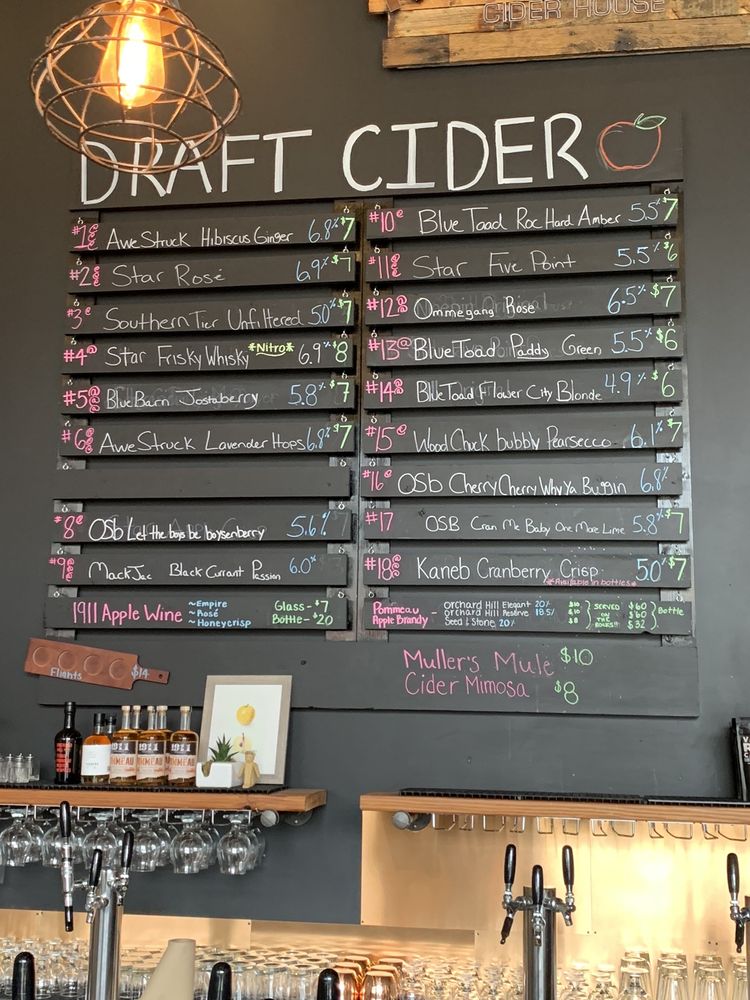 CIDER HOUSE
DRAFT CIDER
#1@ AweStruck Hibiscus Ginger 6.8% $7
#2@ Star Rosé 6.9% $7
#3@ Southern Tier Unfiltered 5.0% $7
#4@ Star Frisky Whisky *Nitro* 6.9% $8
#5@ Blue Barn Jostaberry 5.8% $7
#6@ AweStruck Lavender Hops 6.8% $7
#8@ OSB Let the boys be boysenberry 5.6%
#9@ MackJac Black Currant Passion 6.0%
1911 Apple Wine ~Empire Glass-$7
~Rosé Bottle-$20
~Honeycrisp
#10@ Blue Toad Roc Hard Amber 5.5% $7
#11@ Star Five Point 5.5% $6
#12@ Ommegang Rosé 6.5% $7
#13@ Blue Toad Paddy Green 5.5% $6
#14@ Blue Toad Flower City Blonde 4.9% $6
#15@ Wood Chuck bubbly Pearsecco 6.1% $7
#16@ OSb Cherry Cherry Why Ya Buggin 6.8%
#17 OSB Cran Me Baby One More Lime 5.8% $7
#18@ Kaneb Cranberry Crisp 5.0% $7
*Available in bottles*
Pommeau Apple Brandy - Orchard Hill Elegant 20% $10 SERVED ON THE ROCKS!! $60 Bottle
Orchard Hill 18.5% $60
Seed & Stone 20% $8 $32
Flights $14
Muller's Mule $10
Cider Mimosa $8
1911
1911
1911